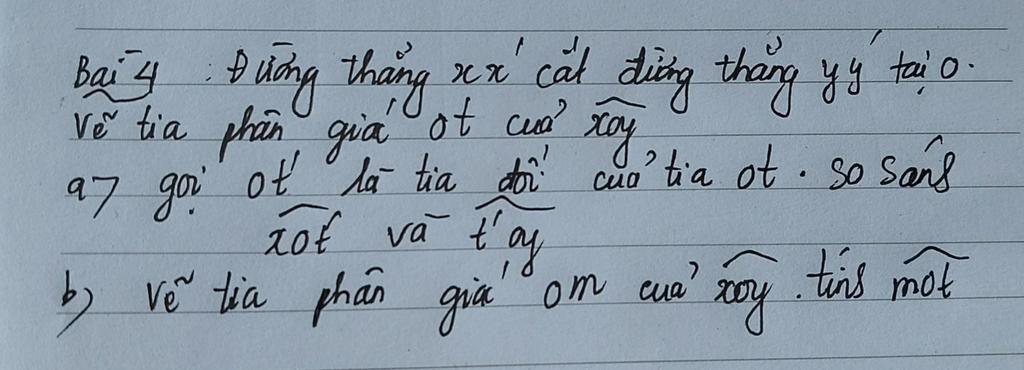 Bài 4 : Đường thẳng xx' cắt đường thẳng yy' tại O.
Vẽ tia phân giác ot của xoy
a> gọi ot' là tia đối của tia ot . so sánh
xot' và t'oy
b) vẽ tia phân giác om của xoy . tính mot